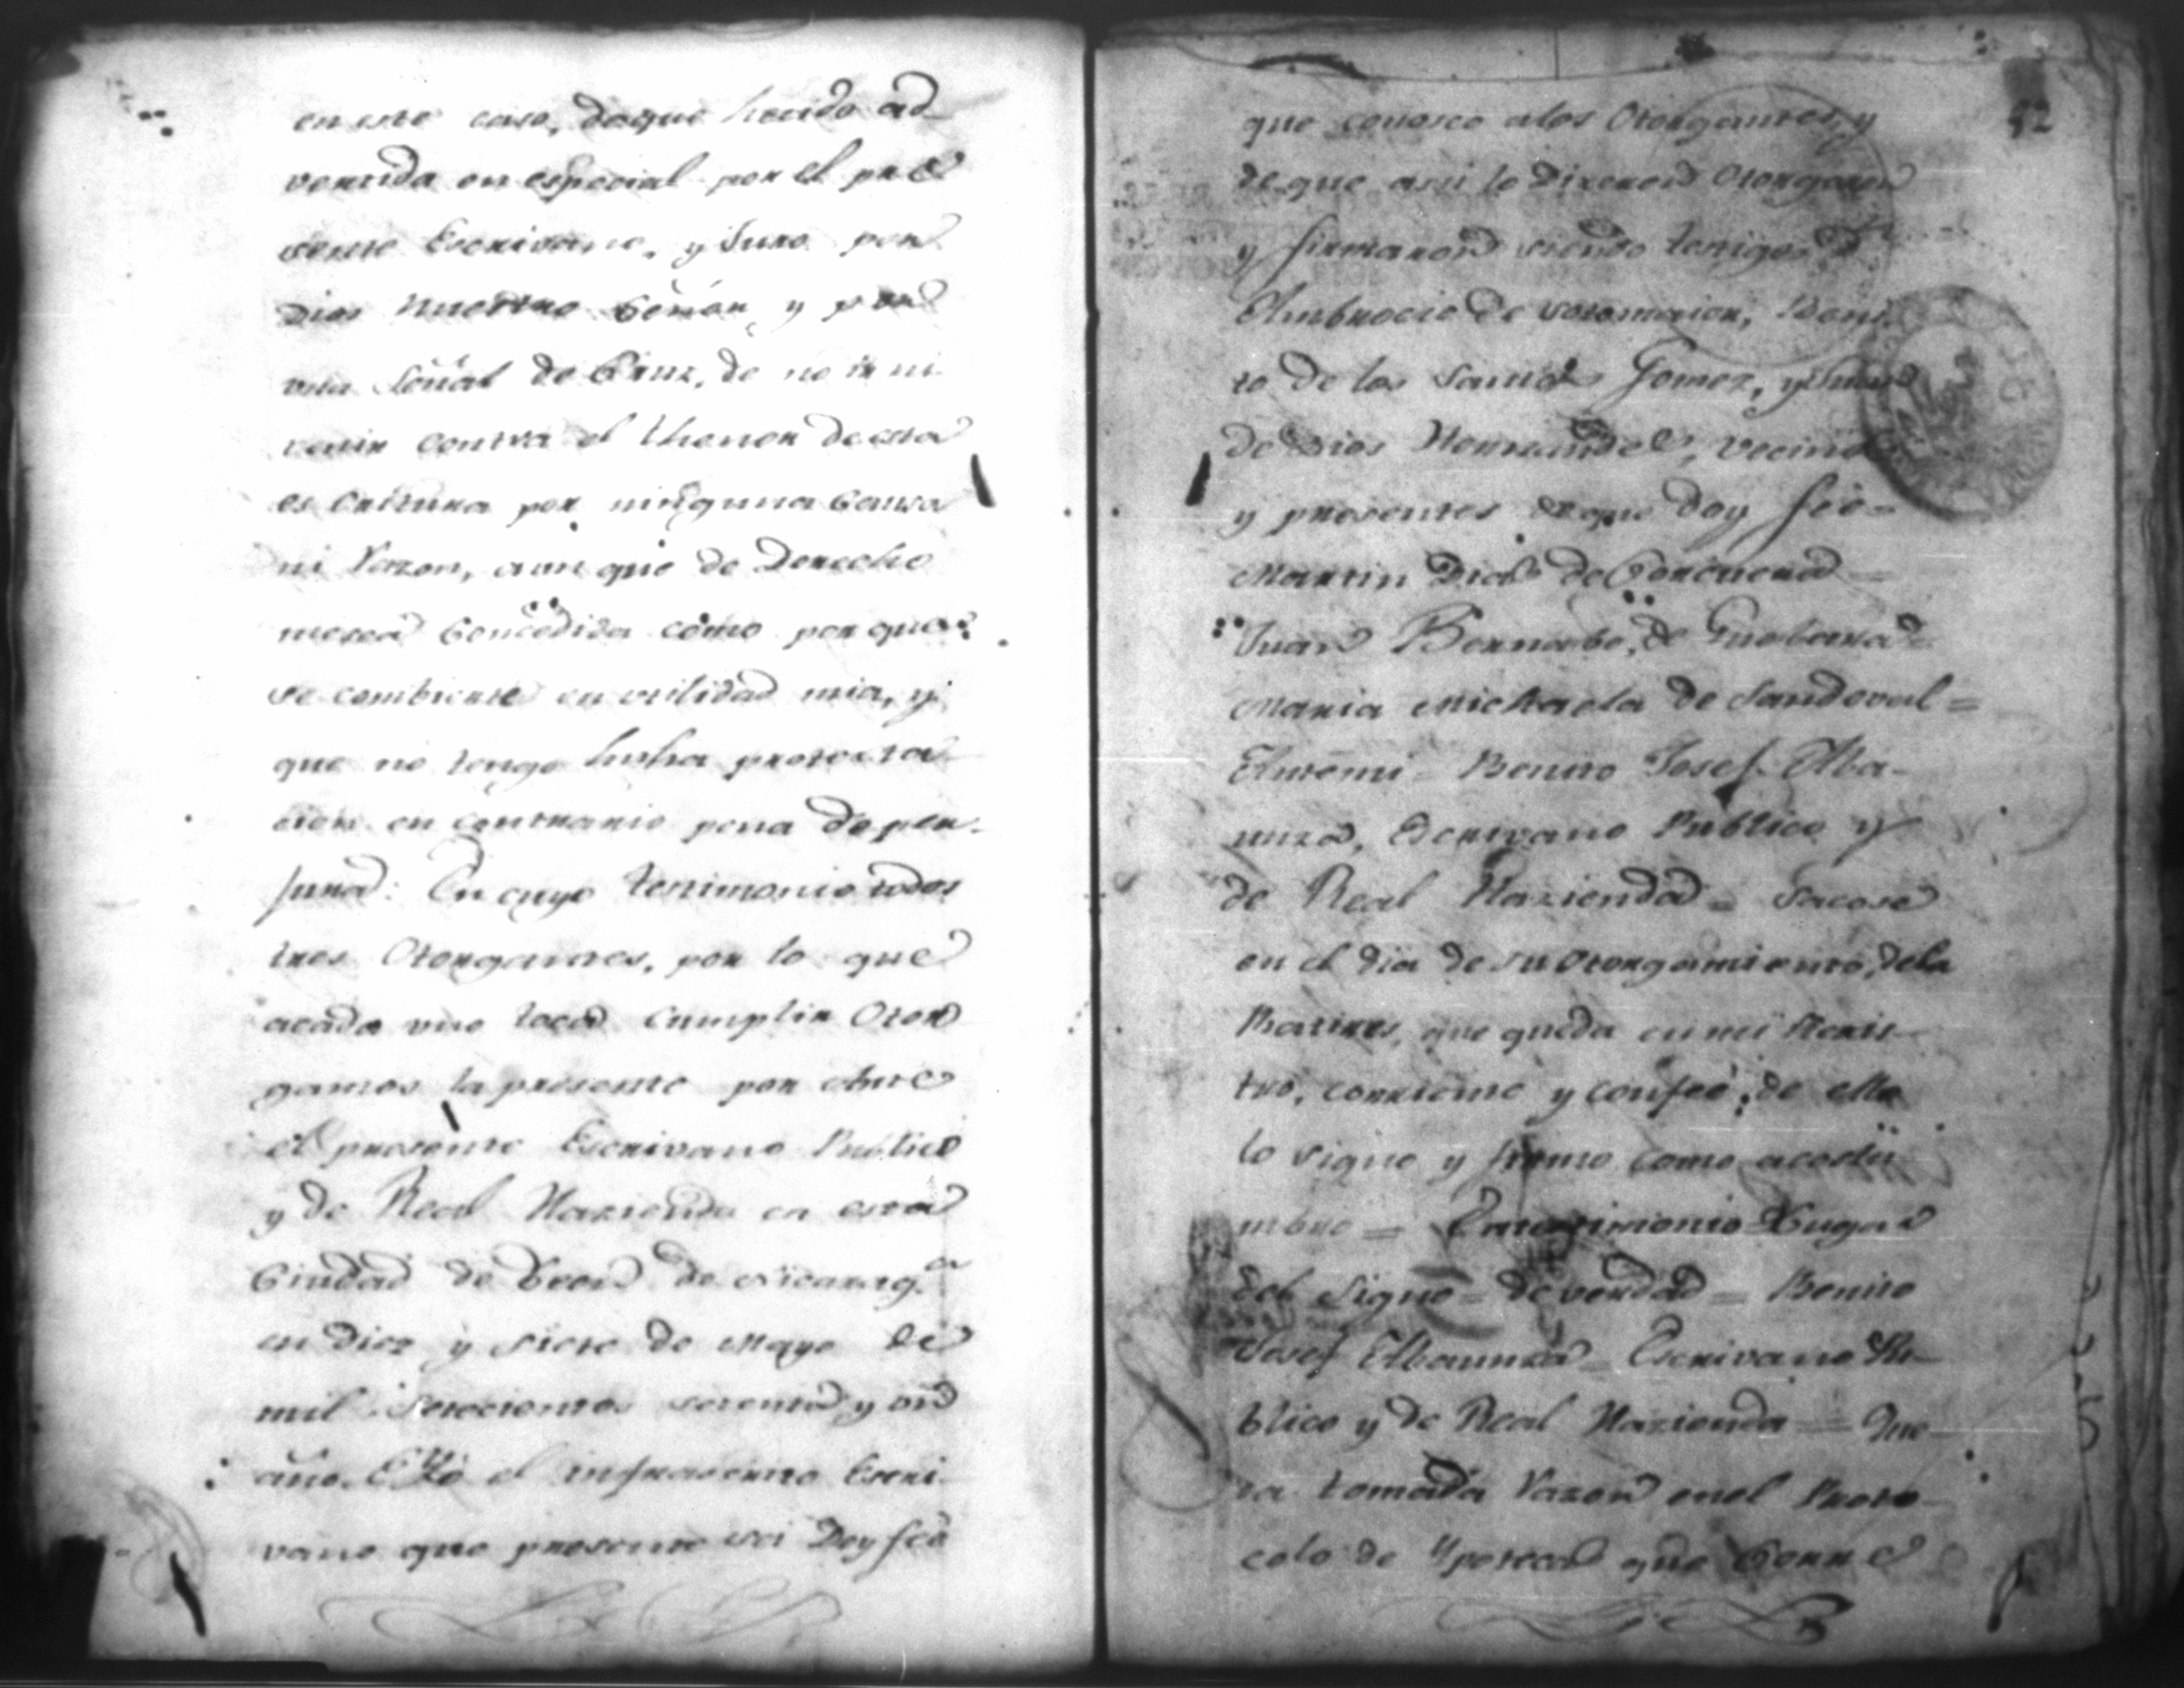 en este caso, de que he sido ad
vertida en especial por el pre
sente Escrivano, y Juro por
Dios Nuestro Señor y por
una Señal de Cruz, de no ir ni
venir contra el thenor de esta
escritura por ninguna Causa
ni Razon, aun que de Derecho
mesea Concedida como por que
se combierte en utilidad mia, y
que no tengo hecha protesta
cion en contrario pena de per-
jura: En cuyo testimonio todos
tres Otorgantes, por lo que
acada uno toca Cumplir Otor
gamos la presente por ante
el presente Escrivano Publico
y de Real Hazienda en esta
Ciudad de Leon de Nicaragᵃ
en diez y siete de Mayo de
mil setecientos setenta y un
año. E Yo el infrascripto Escri-
vano que presente fui Doy feè
92
que conosco alos Otorgantes, y
de que asi lo Dixeron Otorgaron
y firmaron siendo testigos Dⁿ
Ambrocio de Sotomaior, Beni
to de los Santos Gomez, y Juan
de Dios Hernandes, vecinos
y presentes de que doy feè =
Martin Dias de Corcuera =
Juan Bernabe, de Guebarra =
Maria Michaela de Sandoval =
Antemi = Benito Josef Alba-
unza, Escrivano Publico y
de Real Hazienda = Sacose
en el dia de su otorgamiento, dela
Matriz, que queda en mi Regis-
tro, corriente y confeè; de ello
lo signo y firmo como acostu
mbro = Entestimonio Lugar
del Signo = de verdad = Benito
Josef Albaunza = Escrivano Pu-
blico y de Real Hazienda = Que-
da tomada Razon enel Proto-
colo de Ypoteca que Corre